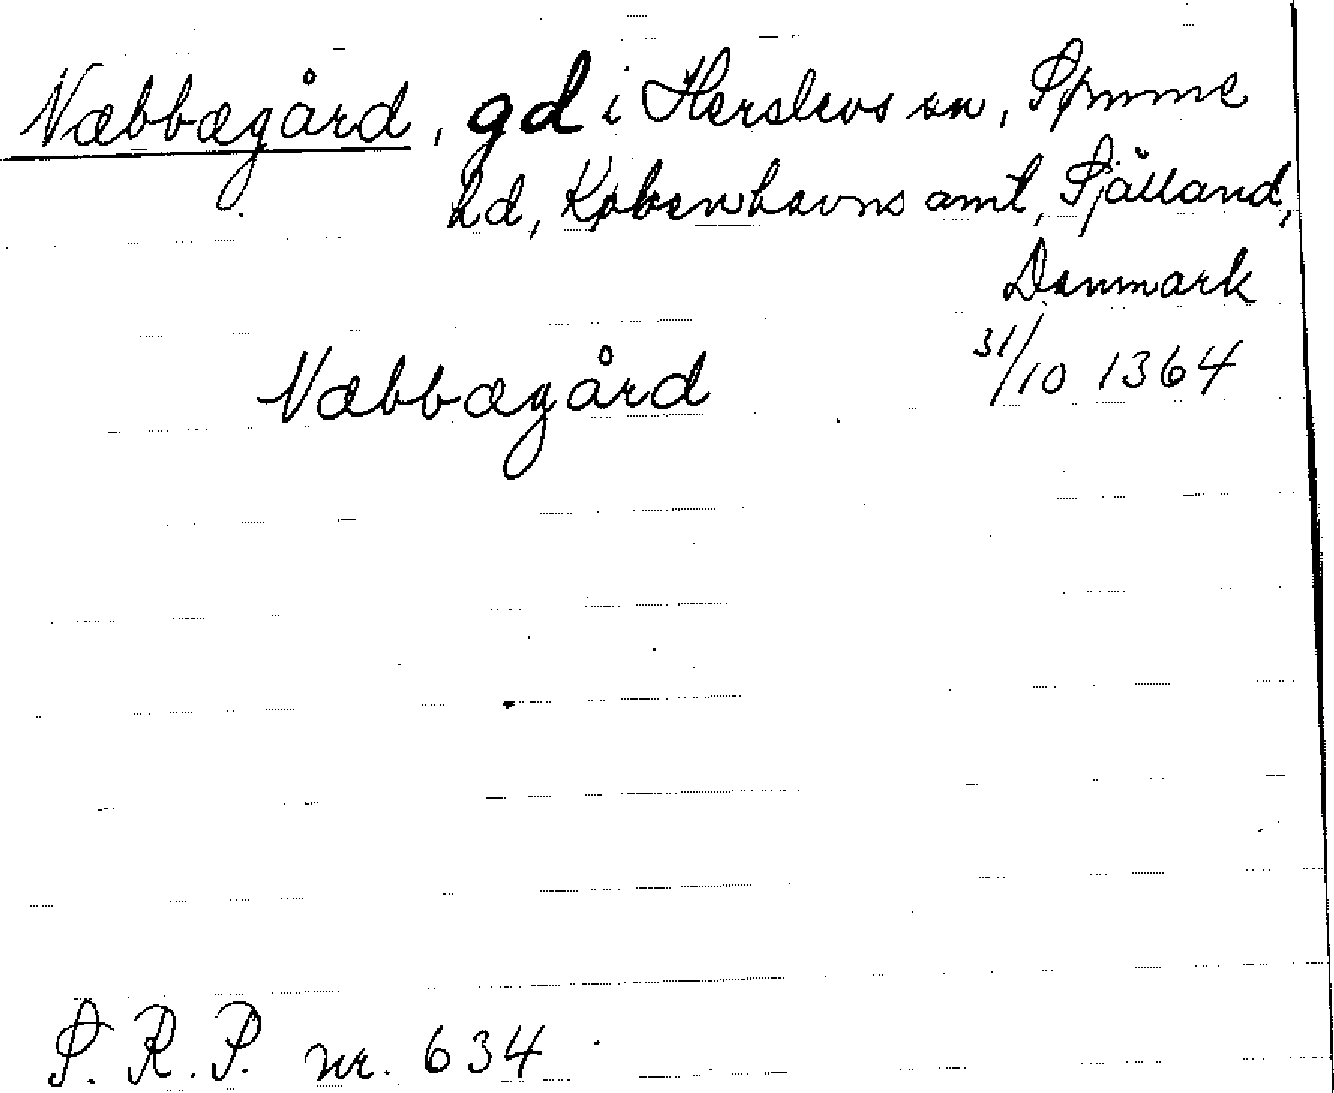 Næbbægård, gd i Herslevs sn, Sømme
hd, Københavns amt, Själland,
Danmark
Næbbægård 31/10 1364
S. R. P. nr. 634